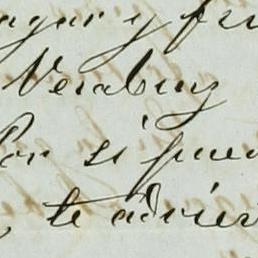 agar y fru
Veraluz
Por si puen
, te advier